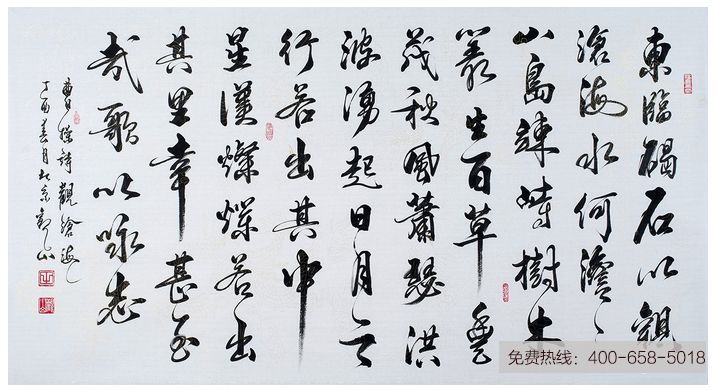 東臨碣石以觀
滄海水何澹〻
山島竦峙樹木
叢生百草豐
茂秋風蕭瑟洪
波湧起日月之
行若出其中
星漢燦爛若出
其里幸甚至
哉歌以咏志
曹操詩觀滄海
丁酉春月
免费热线：400-658-5018